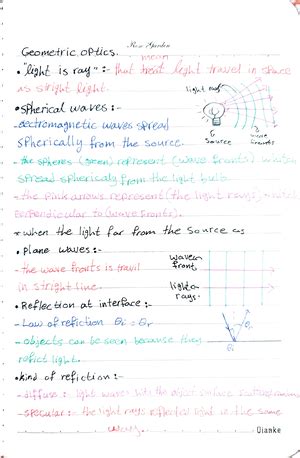 Rose Garden
Geometric optics.
mean
• "light is ray" :- that treat light travel in space
as stright light.
light rays
• Spherical waves :-
- electromagnetic waves spread
spherically from the source.
source
wave
fronts
- the spheres (green) represent (wave fronts) which
spread spherically from the light bulb
- the pink arrows represent (the light rays)
perpendicular to (wave fronts).
* when the light far from the source as
• Plane waves :-
wave
front
- the wave fronts is travil
in stright line
light
rays
• Reflection at interface :-
- Law of refiction θi = θr
- objects can be seen because they
reflct light.
• kind of refiction :-
- diffuse : light waves with the object surface
- specular : the light rays reflected light in the same
way.
Dianke